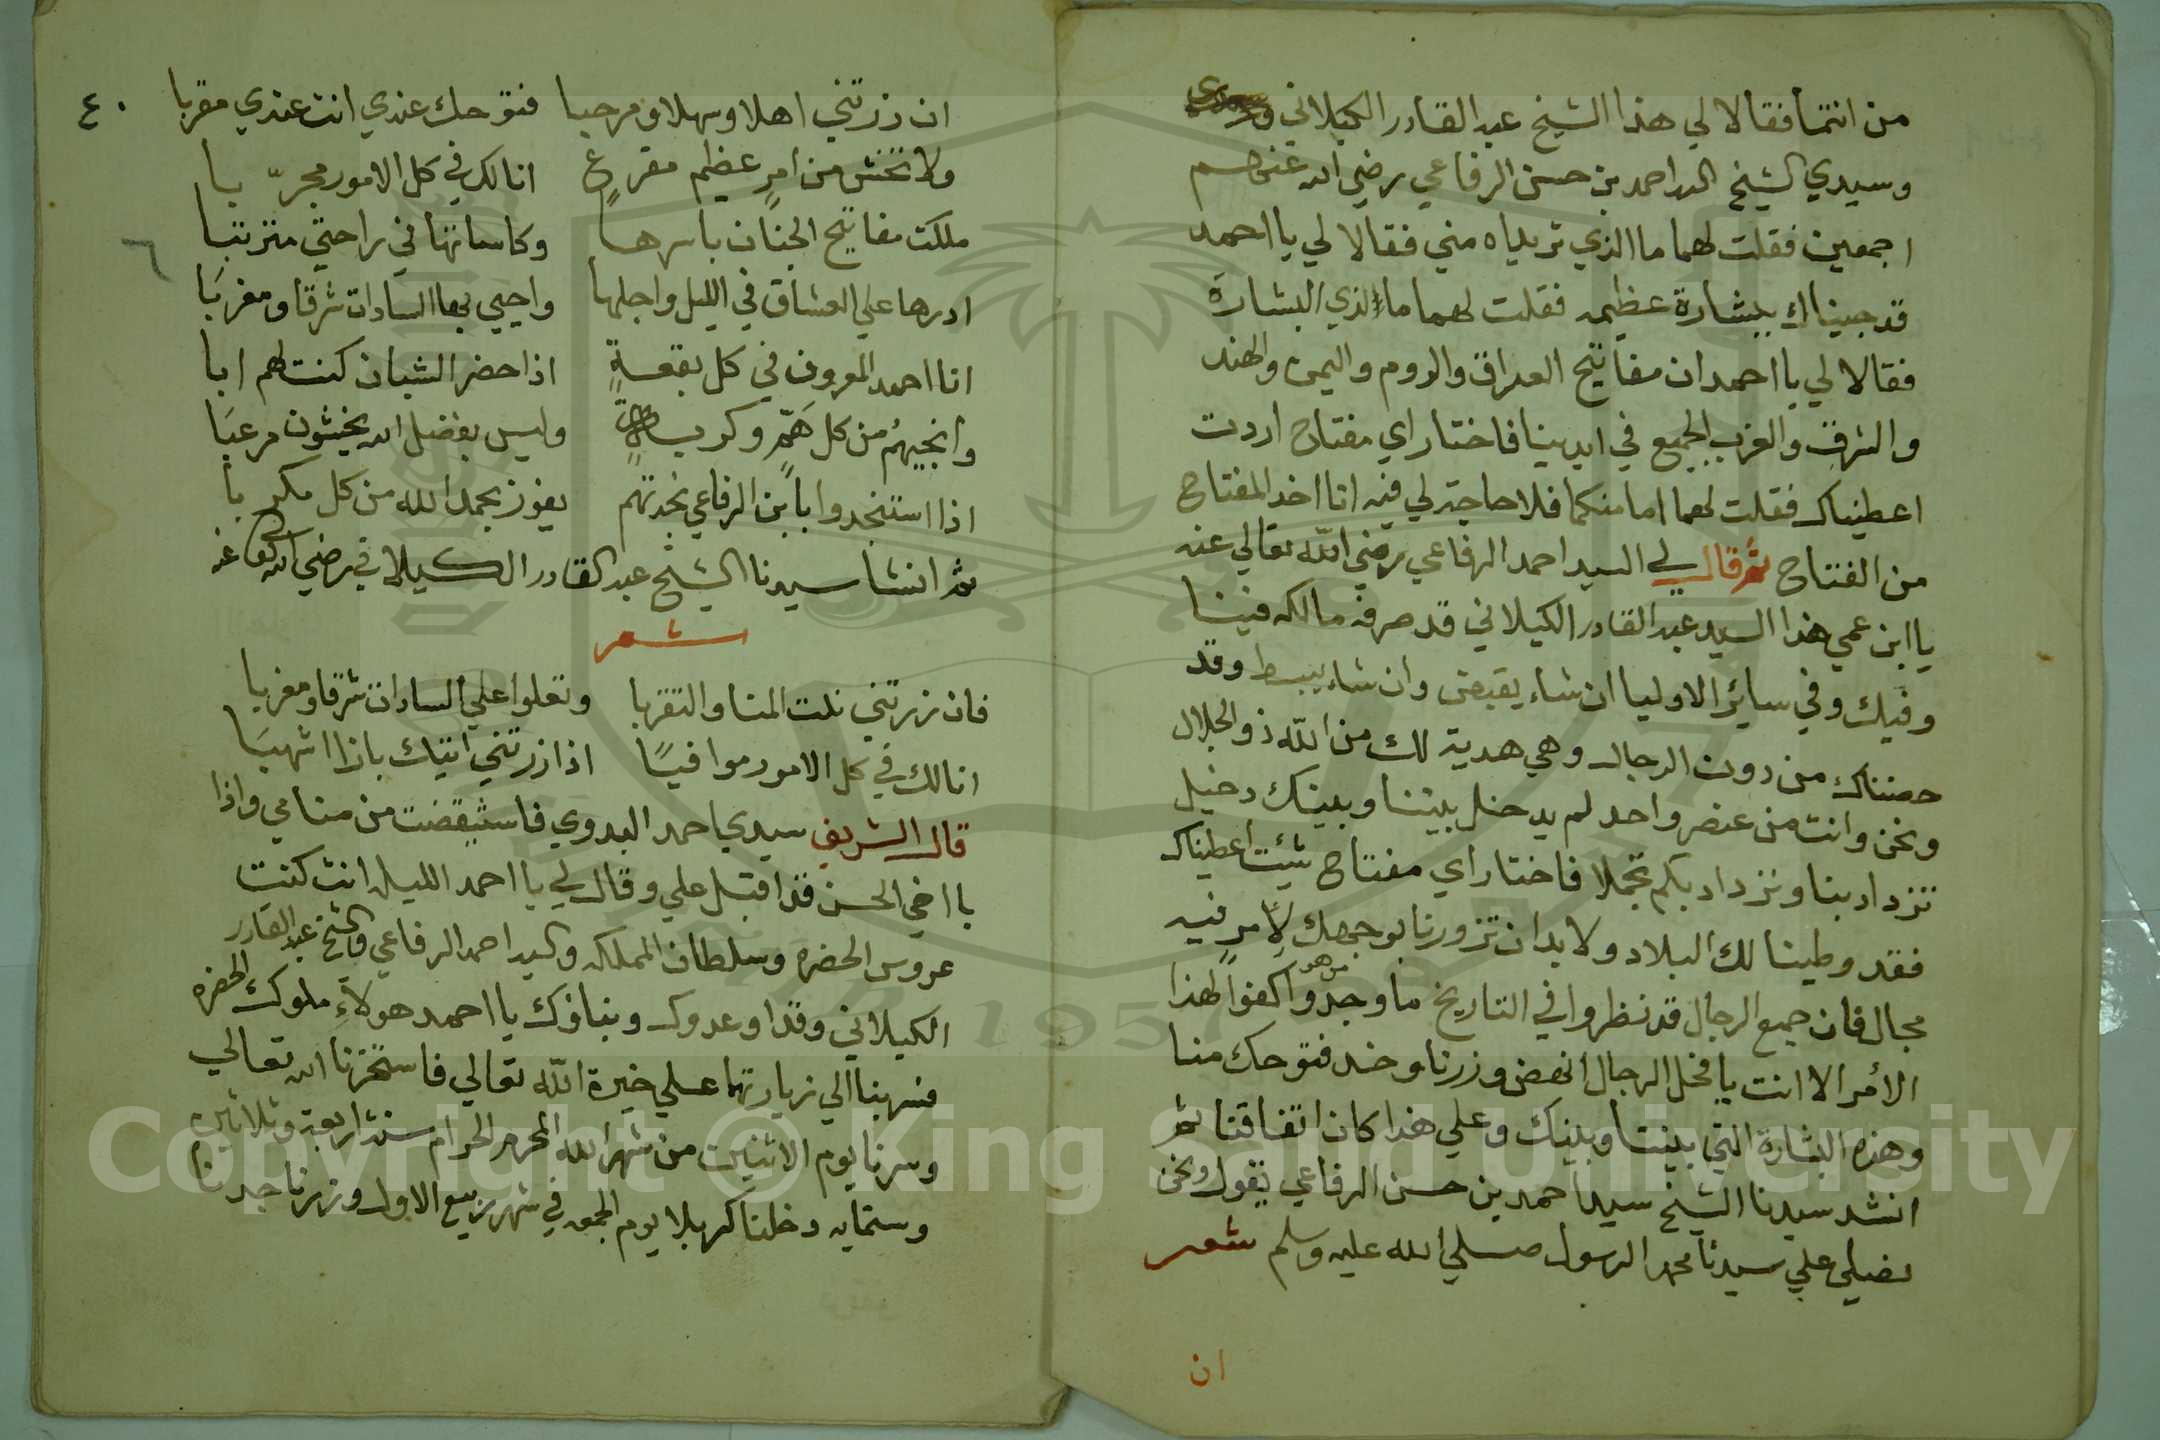 من انتما فقالا لي هذا الشيخ عبد القادر الكيلاني
وسيدي الشيخ السيد احمد بن حسن الرفاعي رضي الله عنهم
اجمعين فقلت لهما ما الذي تريداه مني فقالا لي يا احمد
قد جيناك ببشارة عظيمه فقلت لهما ما الذي البشارة
فقالا لي يا احمد ان مفاتيح العراق والروم واليمن والهند
والشرق والغرب الجميع في ايدينا فاختار اي مفتاح اردت
اعطيناك فقلت لهما اما منكما فلا حاجة لي فيه انا اخد المفتاح
من الفتاح ثم قال لي السيد احمد الرفاعي رضي الله تعالي عنه
يا ابن عمي هذا السيد عبد القادر الكيلاني قد صرفه مالكه فينا
وفيك وفي سائر الاوليا ان شاء يقبض وان شاء يبسط وقد
خصناك من دون الرجال وهي هدية لك من الله ذو الجلال
ونحن وانت من عنصر واحد لم يدخل بيننا وبينك دخيل
تزداد بنا ونزداد بكم تجملا فاختار اي مفتاح شئت اعطيناك
فقد وطينا لك البلاد ولا بد ان تزورنا بوجهك لامر فيه
مجال فان جميع الرجال قد نظروا في التاريخ ما وجدوا من هو اكفوا لهذا
الأمر الا انت يا فحل الرجال انهض وزرنا وخد فتوحك منا
وهذه البشارة التي بيننا وبينك وعلي هذا كان اتفاقنا ثم
انشد سيدنا الشيخ سيدنا احمد بن حسن الرفاعي يقول ونحن
نصلي علي سيدنا محمد الرسول صلي الله عليه وسلم شعر
ان
٤٠
ان زرتني اهلا وسهلا ومرحبا فتوحك عندي انت عندي مقربا
ولا تخش من امرٍ عظيم مقرعٍ انا لك في كل الامور مجربا
ملكت مفاتيح الجنان باسرها وكاساتها في راحتي متزتبا
ادرها علي العشاق في الليل واجلها واحيي بها السادات شرقا ومغربَا
انا احمد المعروف في كل بقعةٍ اذا حضر الشبان كنت لهم ابا
وانجيهُم من كل هَمٍّ وكربةٍ وليس بفضل الله يخشون مرعبَا
اذا استنجدوا بابن الرفاعي نجدتهم يفوز بحمد الله من كل مكربا
ثم انشا سيدنا الشيخ عبد القادر الكيلاني رضي الله تعالى عنه
شعر
فان زرتني نلت المنا والتقربا وتعلوا علي السادات شرقا ومغربا
انا لك في كل الامور موافيًا اذا زرتني اتيك بازا اشهبَا
قال الشريف سيدي احمد البدوي فاستيقضت من منامي واذا
با اخي الحسن قد اقبل علي وقال لي يا احمد الليله انت كنت
عروس الحضره وسلطان المملكه والسيد احمد الرفاعي والشيخ عبد القادر
الكيلاني وقد اوعدوك وبناؤك يا احمد هولاءِ ملوك الحضره
فسربنا الي زيارتهما علي خيرة الله تعالي فاستخرنا الله تعالي
وسرنا يوم الاثنين من شهر الله المحرم الحرام سنة اربعة وثلاثين
وستمايه دخلنا كربلا يوم الجمعه في شهر ربيع الاول وزرنا جدنا
Copyright © King Saud University
1957